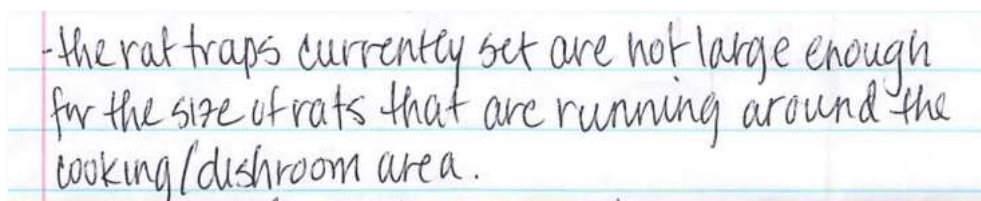 -the rat traps currently set are not large enough
for the size of rats that are running around the
cooking/dishroom area.